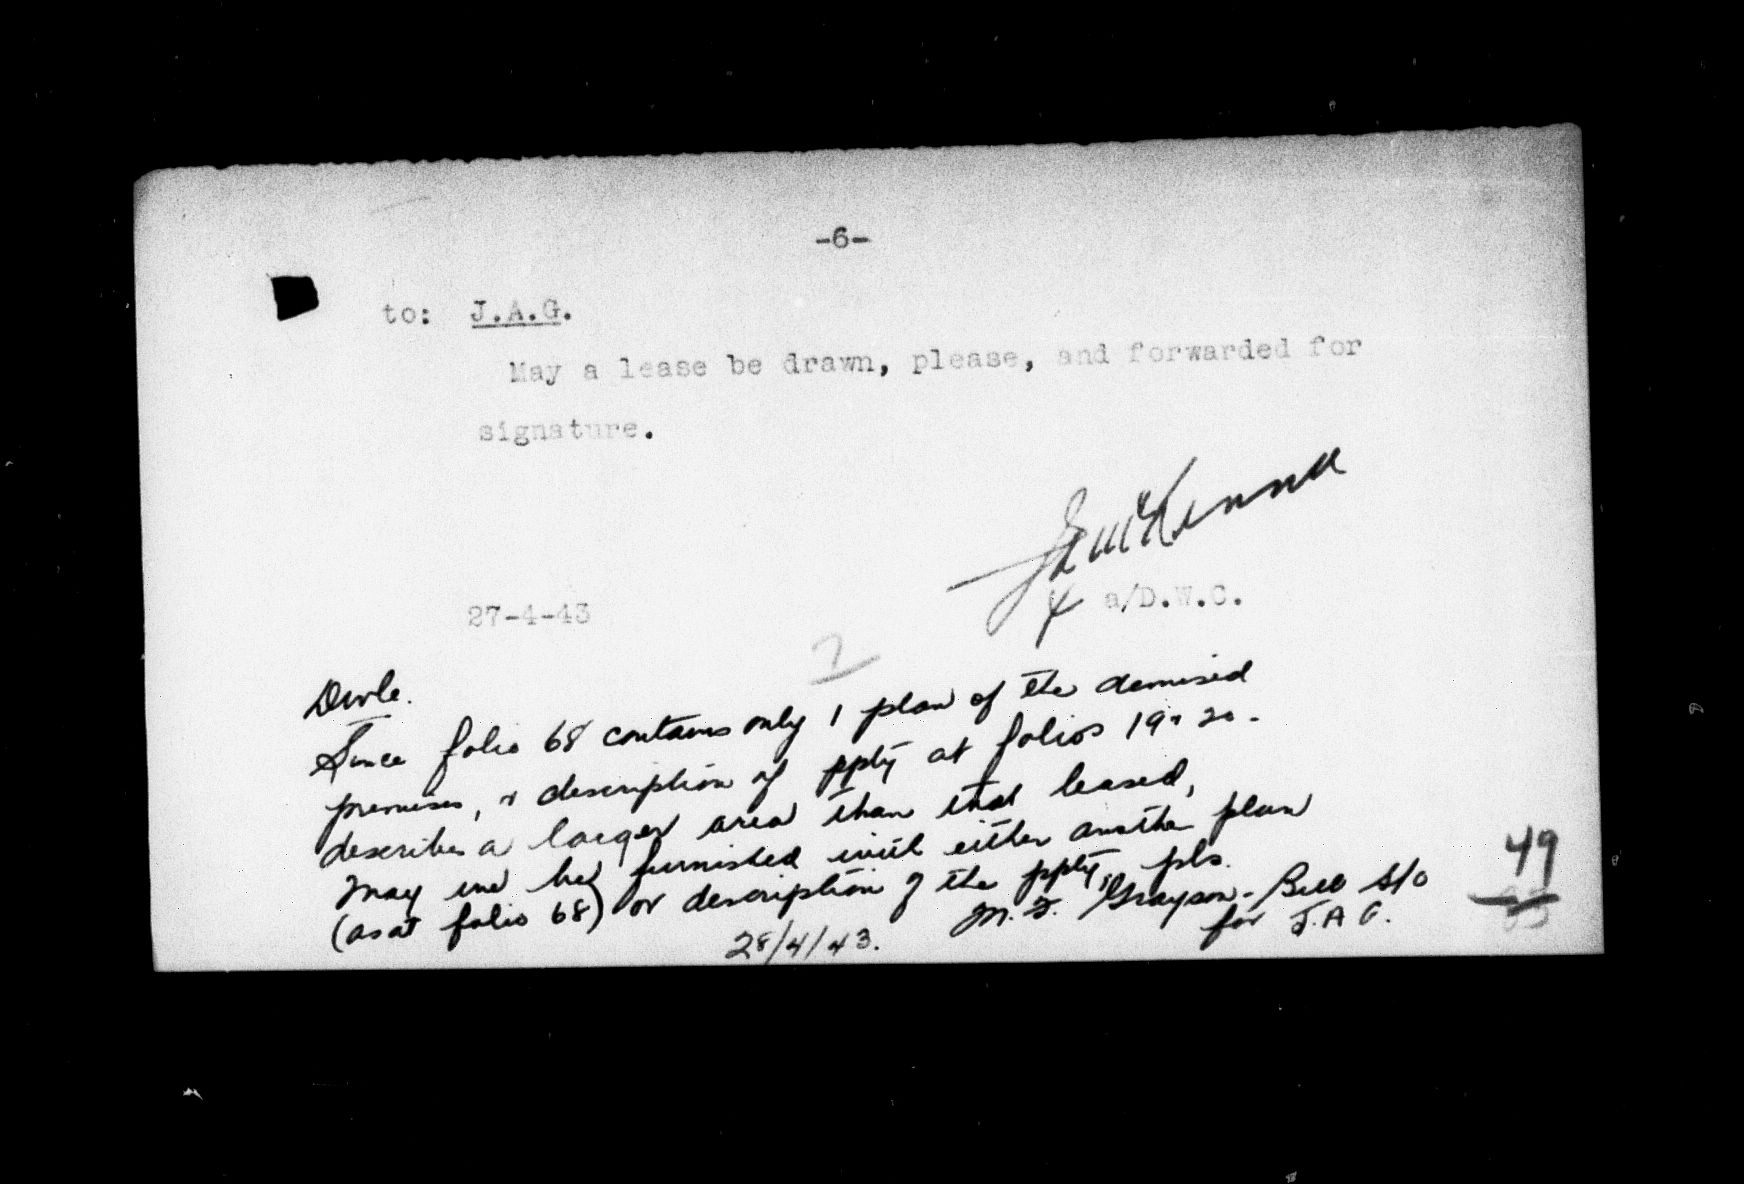 -6-
to: J.A.G.
May a lease be drawn, please, and forwarded for
signature.
a/D.W.C.
27-4-43
2
Since folio 68 contains only 1 plan of the demised
premises, & description of ppty at folios 19 & 20
describes a larger area than that leased,
may we be furnished with either another plan
(as at folio 68) or description of the ppty, pls.
M. F. Grayson-Bell S/O
for J.A.G.
28/4/43.
49